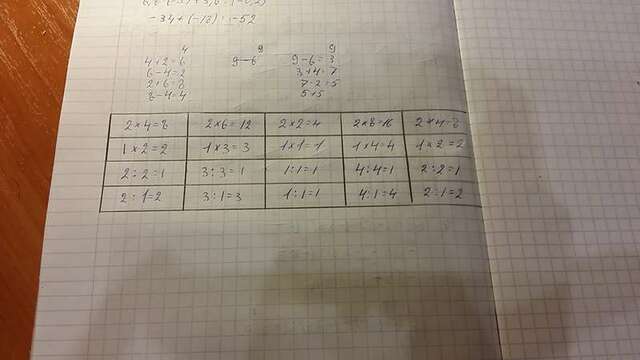 -34+(-18)=-52
4
4+2=6
6-4=2
2+6=8
8-4=4
9
9-6
9
9-6=3
3+4=7
7-2=5
5+5
2×4=8 2×6=12 2×2=4 2×8=16 2×4=8
1×2=2 1×3=3 1×1=1 1×4=4 1×2=2
2:2=1 3:3=1 1:1=1 4:4=1 2:2=1
2:1=2 3:1=3 1:1=1 4:1=4 2:1=2